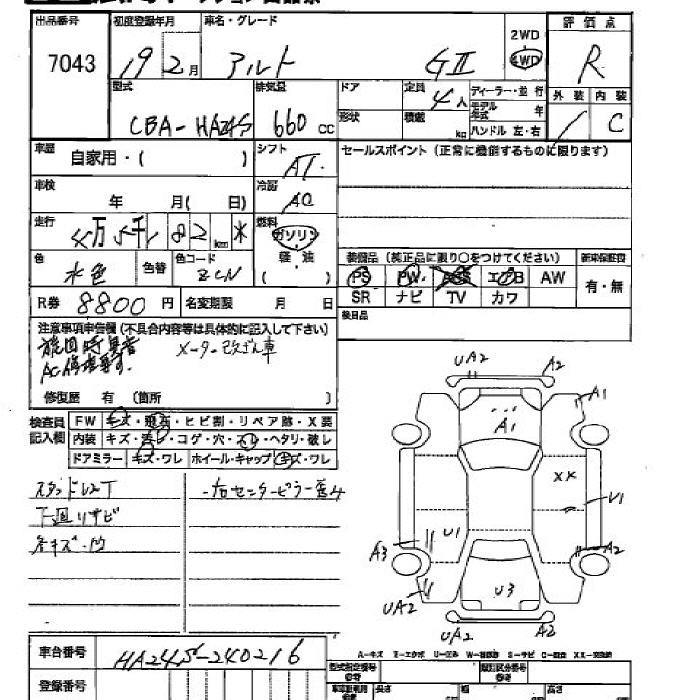 出品番号 初度登録年月 車名・グレード 評価点
7043 19 2月 アルト GⅡ 2WD 4WD R
型式 排気量 ドア 定員 4人 ディーラー・並行 外装 内装
CBA-HA24S 660cc 形状 積載 kg モデル年式 年 ハンドル 左・右 C
車歴 自家用・( ) シフト AT セールスポイント(正常に機能するものに限ります)
車検 年 月( 日) 冷房 AC
走行 万 千 82km 燃料 ガソリン 軽油 ( )
色 水色 色替 色コード ZCN 装備品(純正品に限り○をつけてください) 新車保証書
PS PW エアB AW 有・無
R券 8800円 名変期限 月 日 SR ナビ TV カワ
検目品
注意事項申告欄(不具合内容等は具体的に記入して下さい)
メーター改ざん車
修復歴 有 (箇所 )
検査員記入欄 FW キズ・飛石・ヒビ割・リペア跡・X要
内装 キズ・汚レ・コゲ・穴・ ・ヘタリ・破レ
ドアミラー キズ・ワレ ホイール・キャップ キズ・ワレ
下回りサビ
各キズ・凹
右センターピラー
UA2 A2
A1 A1
XX
U1
U1
A3 A2
U3
UA2
UA2 A2
A-キズ
車台番号 HA24S-240216
型式指定番号 類別区分番号
登録番号 長さ 幅 高さ